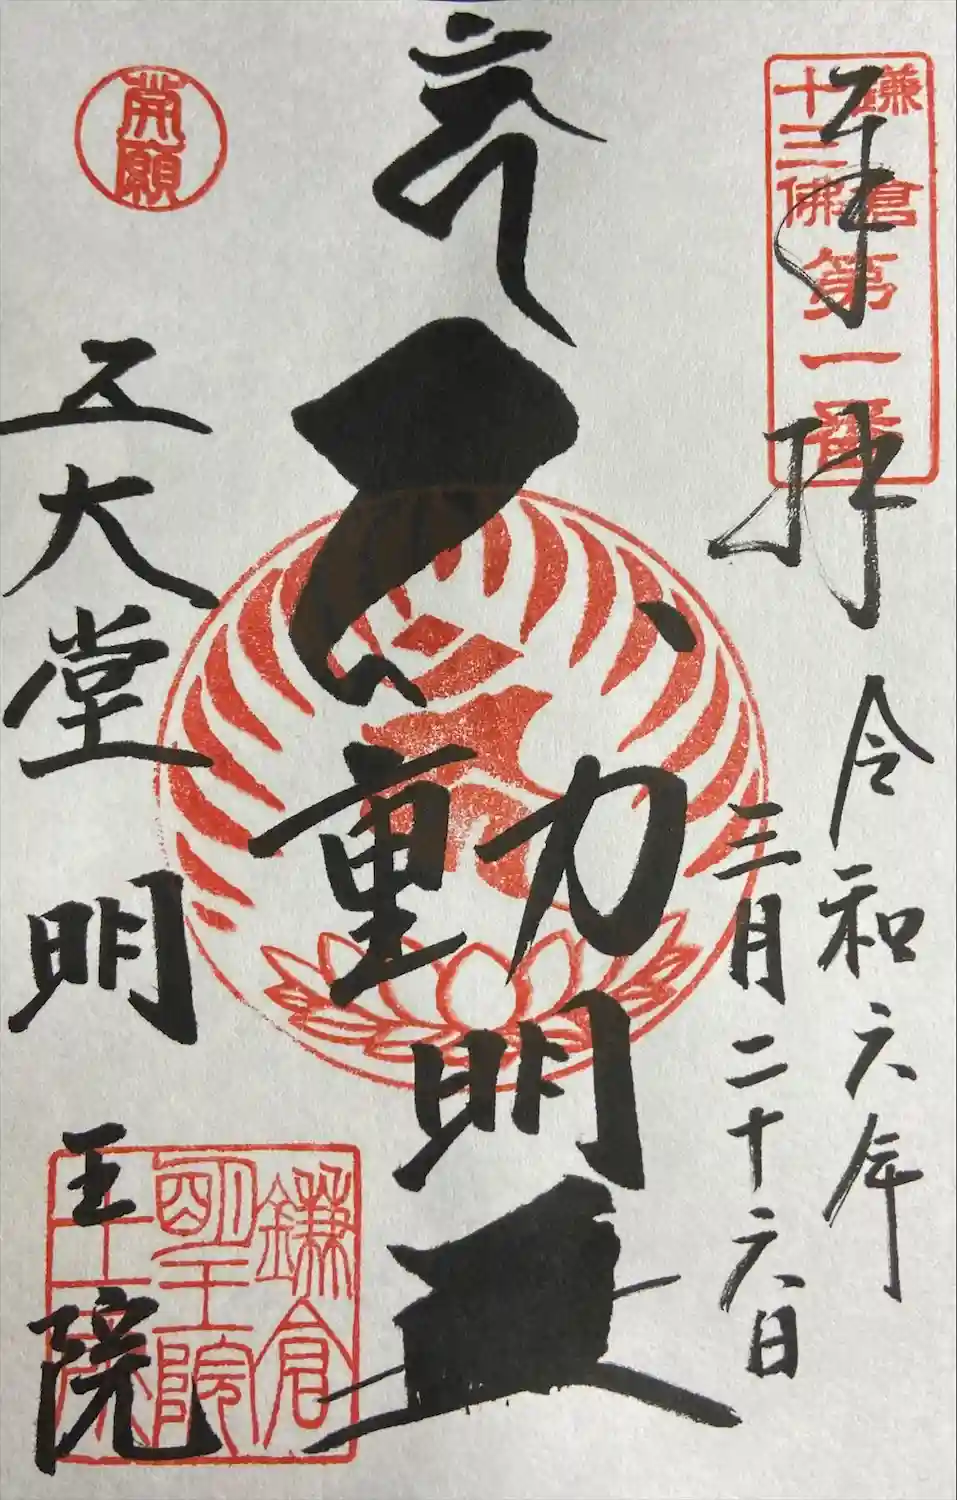 鎌倉
十三佛
第一番
奉拝
令和六年
三月二十六日
不動明王
五大堂
明王院
鎌倉
明王院